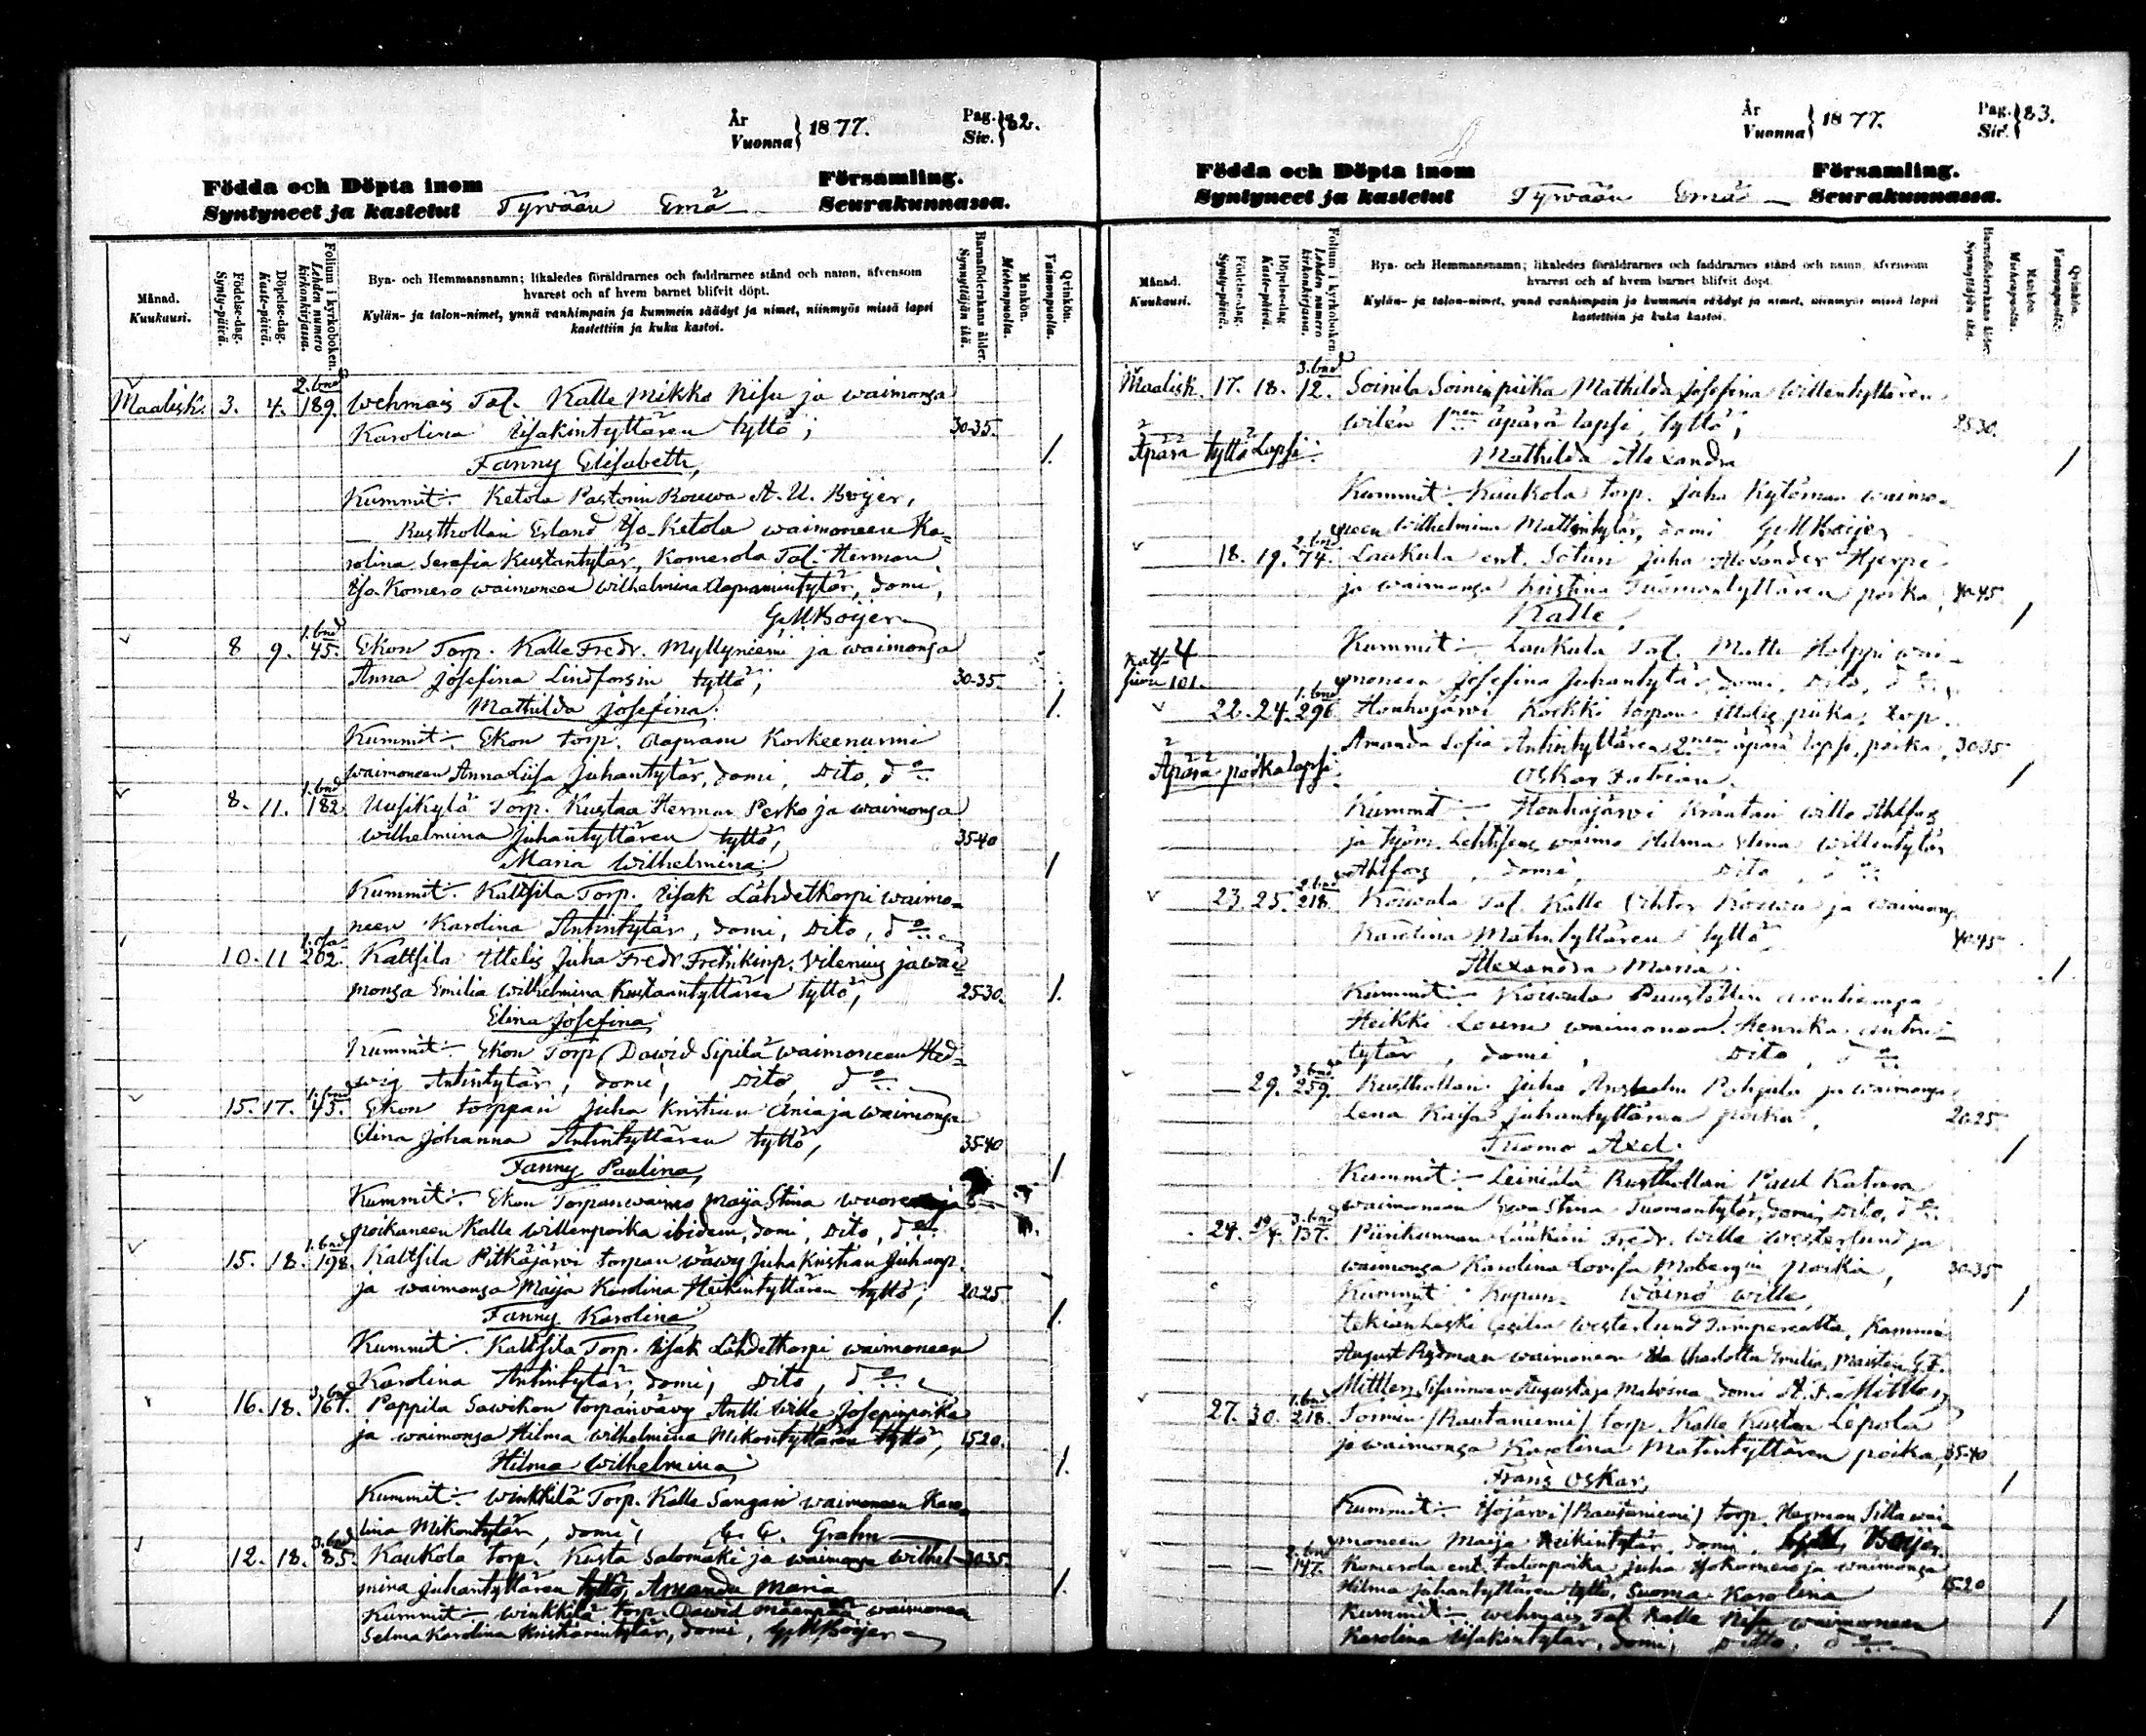 År
Vuonna } 1877.
Pag.
Siv. } 82.
Födda och Döpta inom
Syntyneet ja kastetut Tyrvään Emä
Församling.
Seurakunnassa.
Månad.
Kuukausi.
Födelse-dag.
Synty-päivä.
Döpelse-dag.
Kaste-päivä.
Folium i kyrkoboken.
Lehden numero kirkonkirjassa.
Bya- och Hemmansnamn; likaledes föräldrarnes och faddrarnes stånd och namn, äfvensom
hvarest och af hvem barnet blifvit döpt.
Kylän- ja talon-nimet, ynnä vanhimpain ja kummein säädyt ja nimet, niinmyös missä lapsi
kastettiin ja kuka kastoi.
Barnaföderskans ålder.
Synnyttäjän ikä.
Mankön.
Miehenpuolta.
Qvinkön.
Vaimonpuolta.
2. bnd
Maalisk. 3. 4. 189. Wehmais Tal. Kalle Mikko Nisu ja waimonsa
Karolina Iisakintyttären tyttö; 30-35.
Fanny Elisabeth, 1.
Kummit: Ketola Pastorin Rouwa A. U. Boijer,
Rusthollari Erland Yso-Ketola waimoneen Ka=
rolina Serafia Kustantytär, Komerola Tal. Herman
Yso-Komero waimoneen Wilhelmina Aapramintytär, domi,
G M Boijer
1. bnd
8 9. 45. Ekon Torp. Kalle Fredr. Myllyniemi ja waimonsa
Anna Josefina Lindforsin tyttö; 30-35.
Mathilda Josefina: 1.
Kummit: Ekon torp. Aapram Korkeenurmi
waimoneen Anna Liisa Juhantytär, domi, Dito, do
1. bnd
8. 11. 182. Uusikylä Torp. Kustaa Herman Perko ja waimonsa
Wilhelmina Juhantyttären tyttö, 35-40
Maria Wilhelmina; 1
Kummit: Kaltsila Torp. Iisak Lähdetkorpi waimo=
neen Karolina Antintytär, domi, Dito, do
10. 11 202. Kaltsila Ittelis Juha Fredr. Fredrikinp. Vilenius ja wai
monsa Emilia Wilhelmina Kustaantyttären tyttö, 25-30. 1.
Elina Josefina;
Kummit: Ekon Torp. Dawid Sipilä waimoneen Hed=
wig Antintytär, domi, Dito do
1. bnd
15. 17. 45. Ekon torppari Juha Kristian Ania ja waimonsa
Elina Johanna Antintyttären tyttö, 35-40
Fanny Paulina, 1
Kummit: Ekon Torpanwaimo Maija Stina
poikaneen Kalle Willenpoika ibidem, domi, Dito, do
1. bnd
15. 18. 198. Kaltsila Pitkäjärvi torpan wäwy Juha Kristian Juhanp.
ja waimonsa Maija Karolina Heikintyttären tyttö, 20-25.
Fanny Karolina; 1.
Kummit: Kaltsila Torp. Iisak Lähdetkorpi waimoneen
Karolina Antintytär, domi, Dito, do
16. 18. 167. Pappila Sawikon torpanvävy Antti Wille Josepinpoika
ja waimonsa Hilma Wilhelmina Mikontyttären tyttö, 15-20.
Hilma Wilhelmina; 1.
Kummit: Winkkilä Torp. Kalle Sangari waimoneen Karo=
lina Mikontytär, domi, G. G. Grahn
3. bnd
12. 18. 85. Kaukola torp. Kusta Salomäki ja waimonsa Wilhel- 30-35.
mina Juhantyttären tyttö, Amanda Maria 1.
Kummit: Winkkilä torp. Dawid Mäenpää waimonen
Selma Karolina Kristianintytär, domi, G M Boijer
År
Vuonna } 1877.
Pag.
Siv. } 83.
Födda och Döpta inom
Syntyneet ja kastetut Tyrvään Emä
Församling.
Seurakunnassa.
Månad.
Kuukausi.
Födelse-dag.
Synty-päivä.
Döpelse-dag
Kaste-päivä.
Folium i kyrkoboken.
Lehden numero kirkonkirjassa.
Bya- och Hemmansnamn; likaledes föräldrarnes och faddrarnes stånd och namn, äfvensom
hvarest och af hvem barnet blifvit döpt.
Kylän- ja talon-nimet, ynnä vanhimpain ja kummein säädyt ja nimet, niinmyös missä lapsi
kastettiin ja kuka kastoi.
Barnaföderskans ålder.
Synnyttäjän ikä.
Mankön.
Miehenpuolta.
Qvinkön.
Vaimonpuolta.
3. bnd
Maalisk. 17. 18. 12. Soinila Soinin piika Mathilda Josefina Willentyttären
Wilén 1nen äpärä lapsi, tyttö, 25-30.
Äpärä tyttö Lapsi: Mathilda Alexandra 1
Kummit: Kaukola torp. Juha Kytömaa waimo=
neen Wilhelmina Mattintytär, domi G M Boijer
2. bnd
18. 19. 74. Laukula ent. Sotun Juha Alexander Hjerpe
ja waimonsa Kristina Tuomantyttären poika, 40-45
Kalle, 1
Kummit: Laukula Tal. Matti Halppi wai=
moneen Josefina Juhantytär, domi, Dito, do
101.
1. bnd
22. 24. 296. Houhajärvi Korkki torpan Ittelis piika, torp.
Amanda Sofia Antintyttären 2nen äpärä lapsi, poika, 30-35
Äpärä poika lapsi: Oskar Fabian. 1
Kummit: Houhajärvi Kräätäri Wille Ahlfors
ja työm. Lehtisen waimo Hilma Stina Willentytär
Ahlfors, domi, Dito, do
2. bnd
23. 25. 218. Kouwola Tal. Kalle Vihtor Kouwu ja waimons
Karolina Matintyttären tyttö 40-45
Alexandra Maria. 1
Kummit: Kouwola Puustellin
Heikki Launu waimonen Henrika Antin=
tytär, domi, Dito, do
29. 259. Rusthollari Juha Anshelm Pohjala ja waimonsa
Lena Kaisa Juhantyttären poika, 20-25
Tuomo Axel. 1
Kummit: Leiniälä Rusthollari Paul Katara
waimoneen Ewa Stina Tuomantytär, domi, Dito, do
3. bnd
24. 137. Piirikunnan Lääkäri Fredr. Wille Westerlund ja
waimonsa Karolina Lovisa Mobergin poika, 30-35
Kummit: Wäinö Wille, 1
tekiän Leski Cecilia Westerlund Tampereelta,
August Rydman waimoneen Ida Charlotta Emilia, Maisteri G. F.
Mittler Augusta ja Malvina, domi A. F. Mittler
1. bnd
27. 30. 218. Tormin /Rautaniemi/ torp. Kalle Kustaa Lepola
ja waimonsa Karolina Matintyttären poika, 35-40
Frans Oskar, 1
Kummit: /Rautaniemi/ torp. Herman Silla wai=
moneen Maija Heikintytär, domi, Boijer
2. bnd
147. Komerola ent. talonpoika Juha Ysokomero ja waimonsa
Hilma Juhantyttären tyttö, Suoma Karolina 15-20
Kummit: Wehmais Tal. Kalle Nisu waimoneen 1
Karolina Iisakintytär, domi, Ditto, do